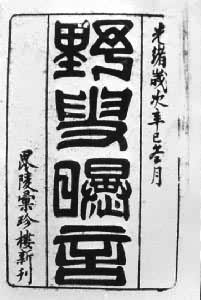 光緒歲次辛巳月
野叟曝言
毘陵彙珍樓新刊